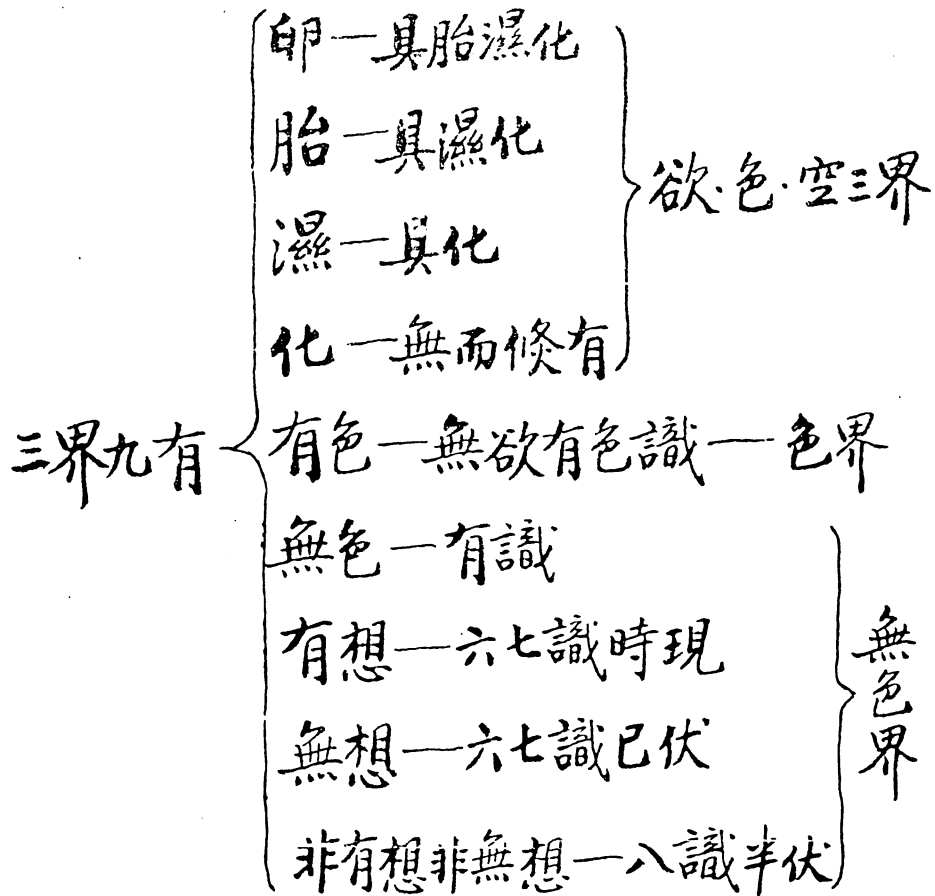 三界九有
卵—具胎濕化
胎—具濕化
濕—具化
化—無而倐有
欲·色·空三界
有色—無欲有色識—色界
無色—有識
有想—六七識時現
無想—六七識已伏
非有想非無想—八識半伏
無色界